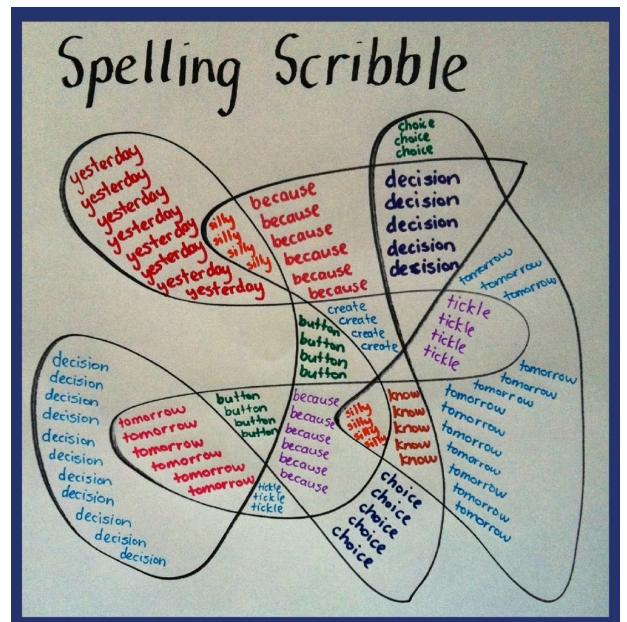 Spelling Scribble
choice
choice
choice
yesterday
yesterday
yesterday
yesterday
yesterday
yesterday
yesterday
yesterday
silly
silly
silly
silly
because
because
because
because
because
because
decision
decision
decision
decision
decision
tomorrow
tomorrow
tomorrow
create
create
create
create
tickle
tickle
tickle
tickle
button
button
button
button
decision
decision
decision
decision
decision
decision
decision
decision
decision
decision
decision
tomorrow
tomorrow
tomorrow
tomorrow
tomorrow
tomorrow
button
button
button
button
tickle
tickle
tickle
because
because
because
because
because
because
silly
silly
silly
silly
know
know
know
know
know
choice
choice
choice
choice
choice
tomorrow
tomorrow
tomorrow
tomorrow
tomorrow
tomorrow
tomorrow
tomorrow
tomorrow
tomorrow